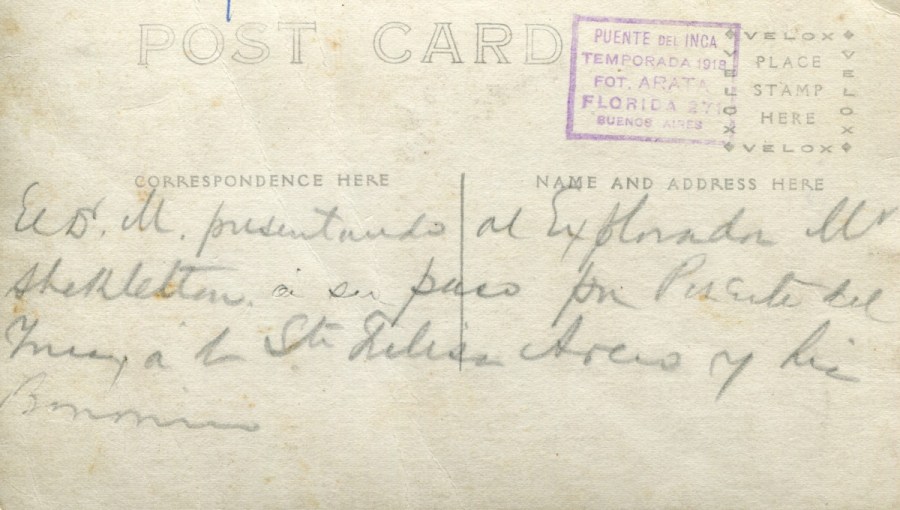 POST CARD
PUENTE DEL INCA
TEMPORADA 1918
FOT. ARATA
FLORIDA 271
BUENOS AIRES
VELOX
VELOX
VELOX
VELOX
PLACE
STAMP
HERE
CORRESPONDENCE HERE
NAME AND ADDRESS HERE
El Dr. M. presentando al Explorador Mr
Shekletton á su paso por Puente del
Inca, á la Sta Felisa y